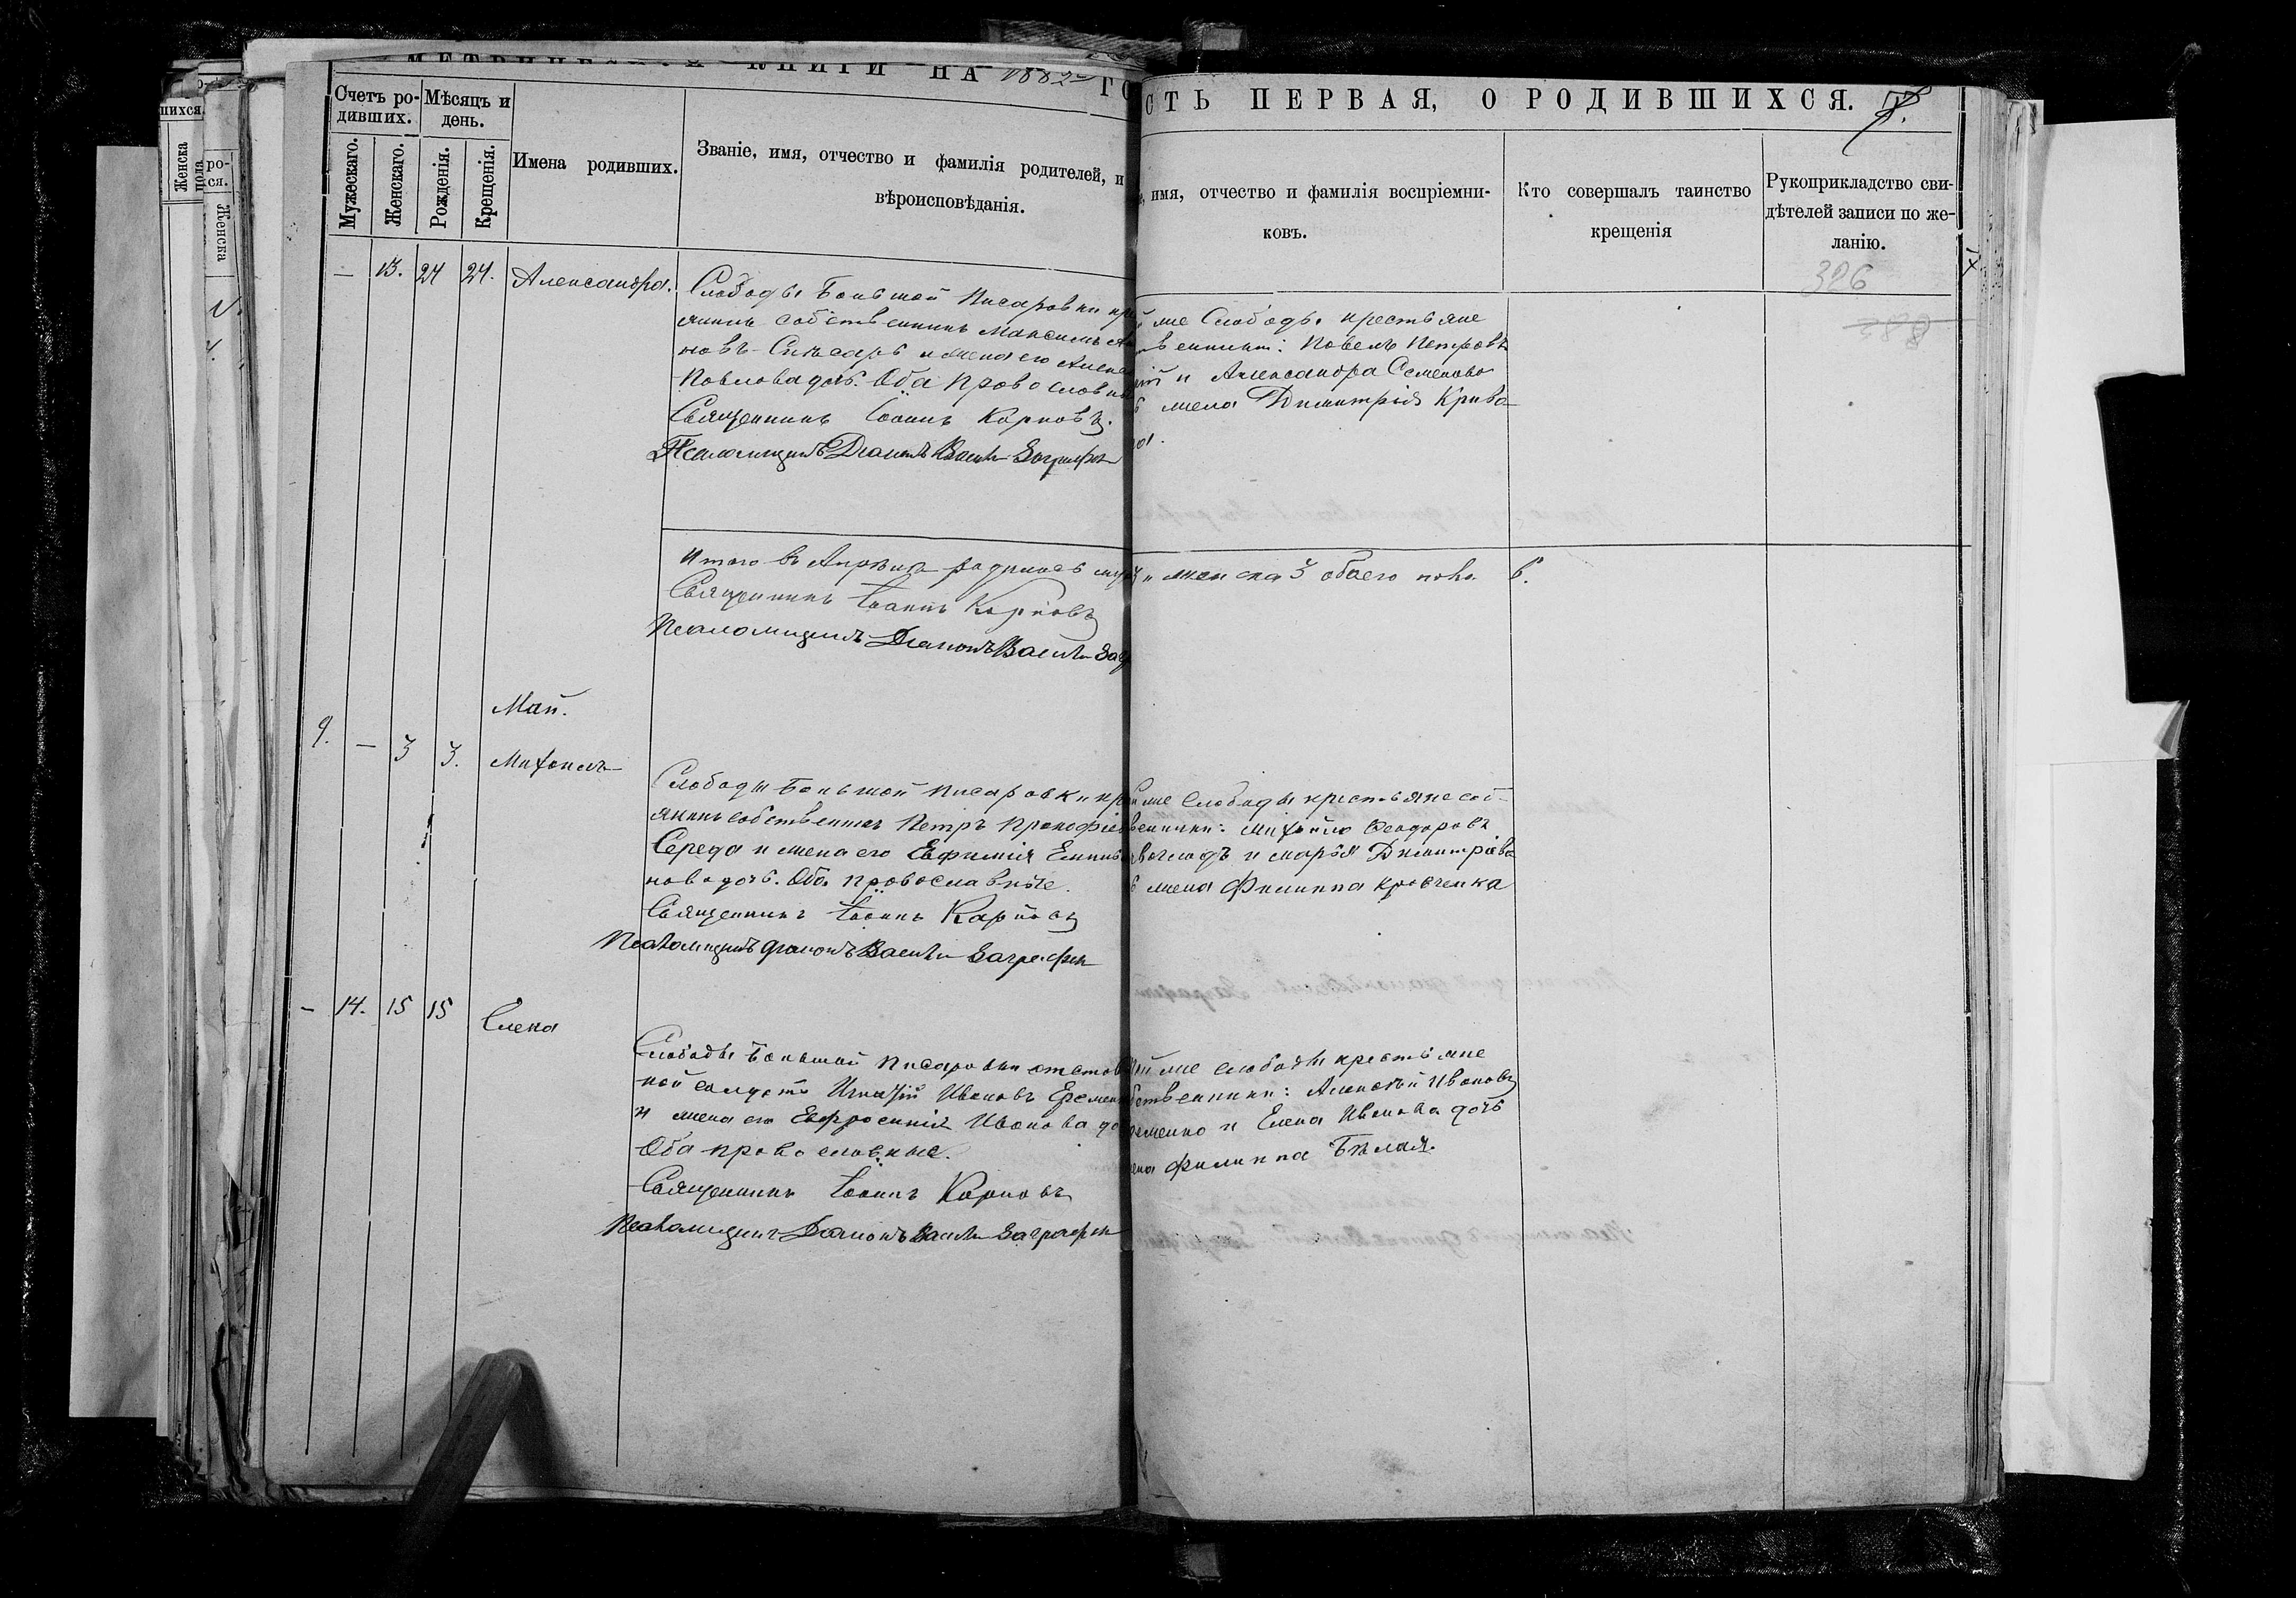 МЕТРИЧЕСКОЙ КНИГИ НА 1882 ГО
СТЬ ПЕРВАЯ, О РОДИВШИХСЯ.
Счетъ ро-
дившихъ.
Мѣсяцъ и
день.
Мужескаго.
Женскаго.
Рожденія.
Крещенія.
Имена родившихъ.
Званіе, имя, отчество и фамилія родителей, и
вѣроисповѣданія.
имя, отчество и фамилія воспріемни-
ковъ.
Кто совершалъ таинство
крещенія
Рукоприкладство сви-
дѣтелей записи по же-
ланію.
326
— 13. 24 24. Александра.
Слободы Большой Писаровки кре
янинъ собственникъ Максимъ
новъ Слюсарь и жена его Алекса
Павлова дочь. Оба православны
Священникъ Іоаннъ Карповъ.
Псаломщикъ Діаконъ Васили Заграфск
же Слободы крестьяне
твенники: Павелъ Петровъ
ий и Александра Семенова
ь жена Димитрія Криво
Итого въ Апрѣлѣ родилось муж
и женска 3 обоего пола 6.
Священникъ Іоаннъ Карповъ
Псаломщикъ Діаконъ Васили Загр
Май.
9. — 3 3. Михаилъ
Слободы Большой Писаровки кре
янинъ собственникъ Петръ Прокофіев
Середа и жена его Евфимія Емилья
нова дочь. Оба православные.
Священникъ Іоаннъ Карповъ
Псаломщикъ діаконъ Васили Заграфск
же Слободы крестьяне соб-
венники: Михаилъ Феодоровъ
и Марія Димитріева
ь жена Филиппа Кравченка
— 14. 15 15 Елена
Слободы Большой Писаровки отстав
ной солдатъ Игнатій Ивановъ Еремен
и жена его Евфросинія Иванова до
Оба православные.
Священникъ Іоаннъ Карповъ
Псаломщикъ Діаконъ Васили Заграфск
й же слободы крестьяне
бственники: Алексѣй Ивановъ
ременко и Елена Иванова дочь
ена Филиппа Бѣлая.